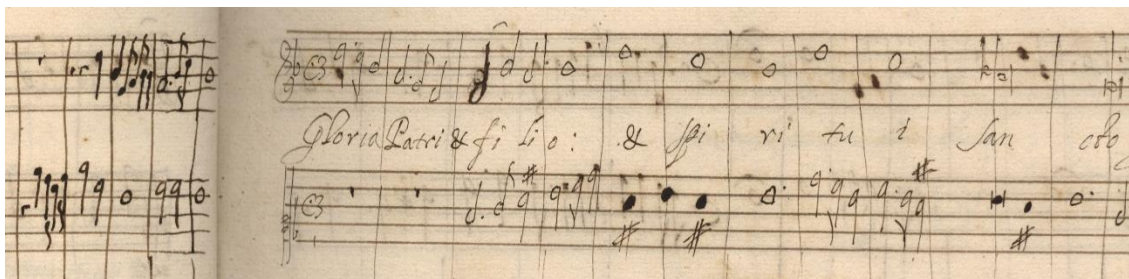 Gloria Patri & fi li o : & Spi ri tu i San cto